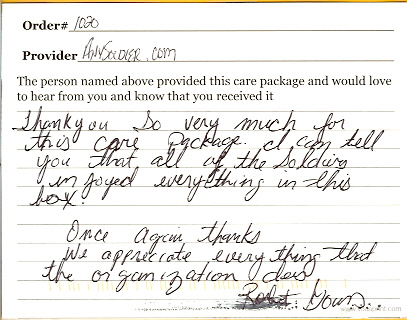 Order# 1020
Provider AnySoldier.com
The person named above provided this care package and would love
to hear from you and know that you received it
Thank you So very much for
this care package. I can tell
you that all of the Soldiers
injoyed everything in this
box.
Once Again thanks
We appreciate every thing that
the organization does